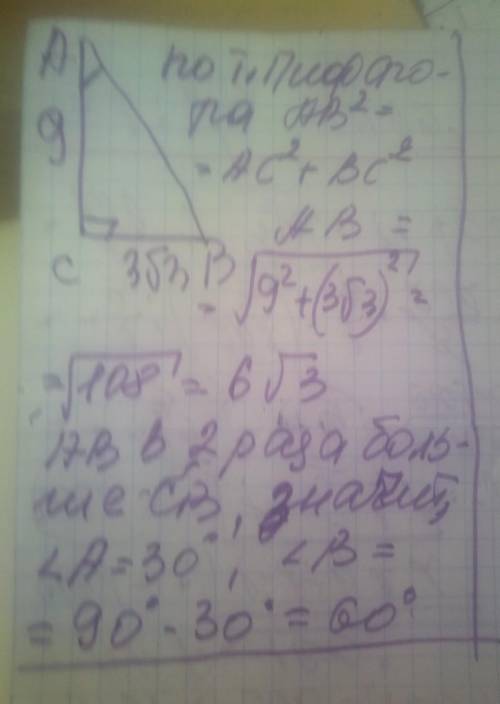 A
9
C 3√3 B
по т. Пифаго-
ра AB² =
= AC² + BC²
AB =
= √9² + (3√3)² =
= √108 = 6√3
AB в 2 раза боль-
ше CB, значит,
∠A = 30°, ∠B =
= 90° - 30° = 60°